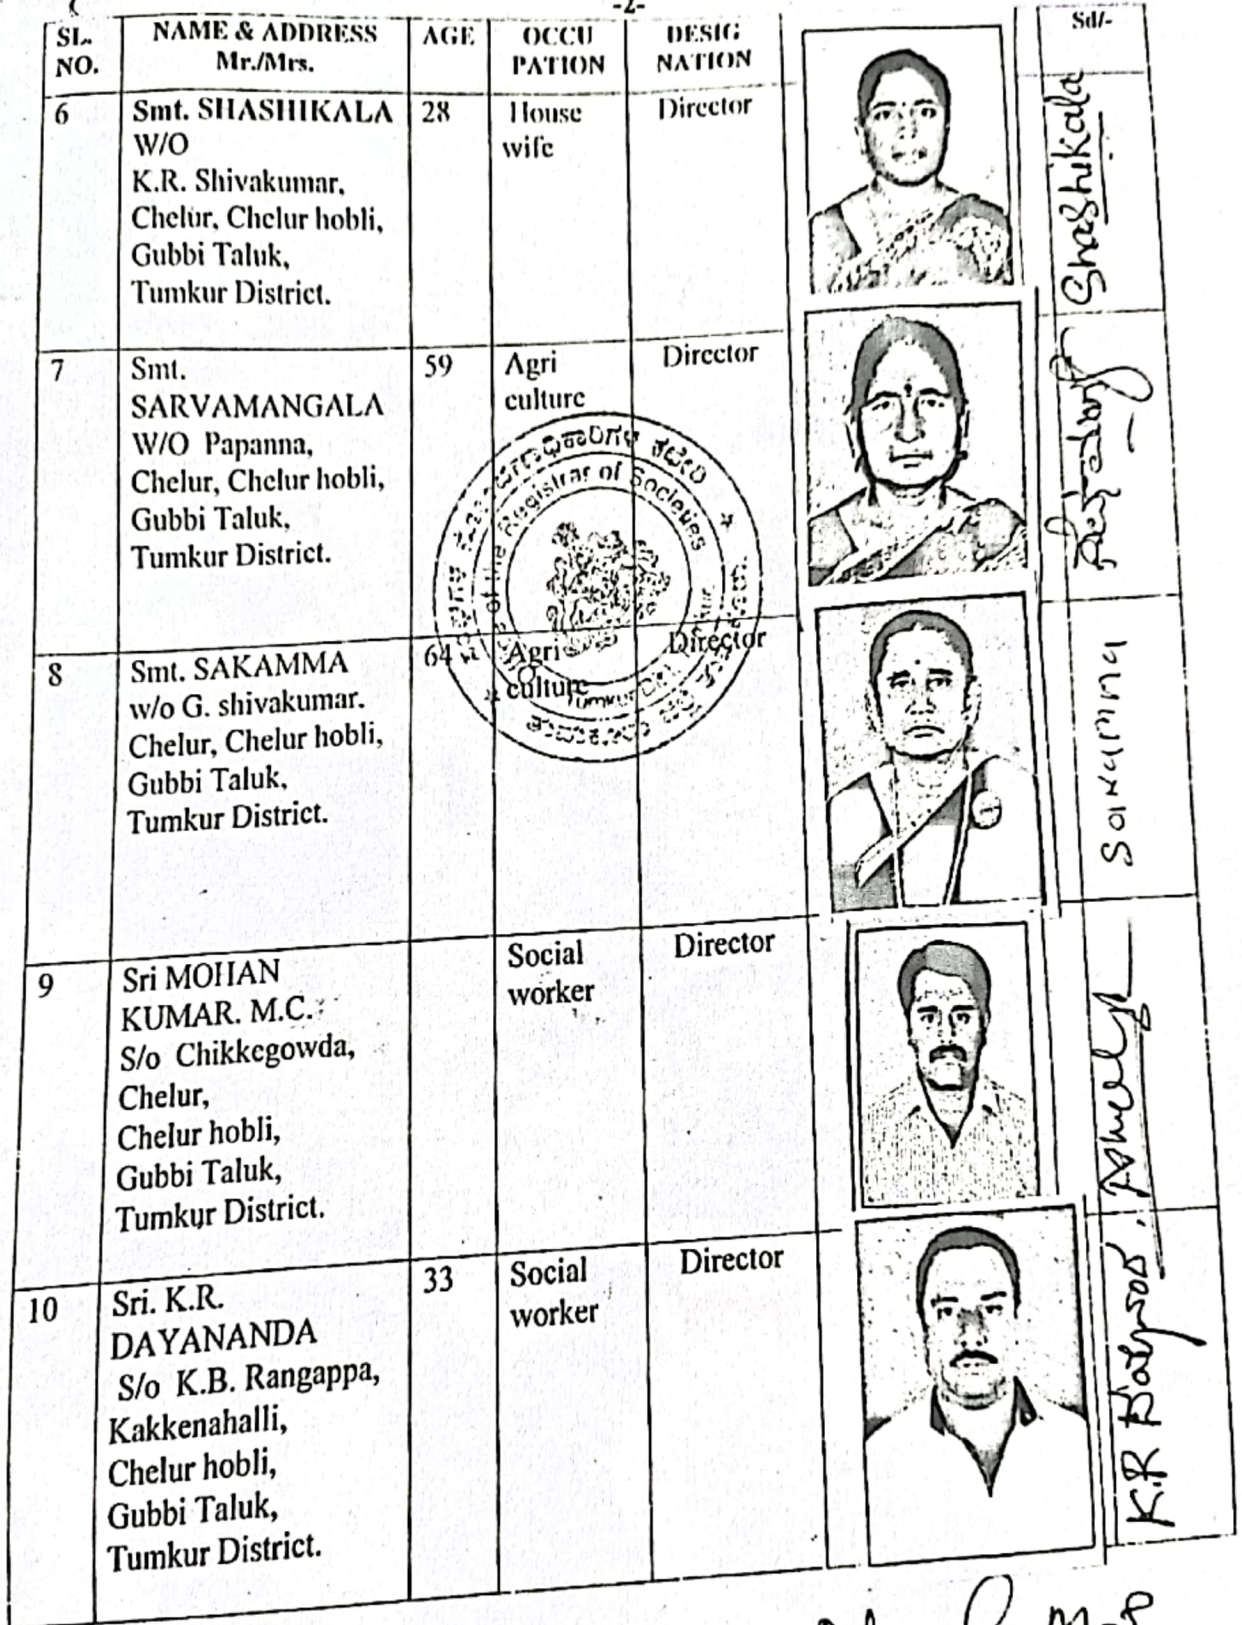 -2-
SL. NO.
NAME & ADDRESS Mr./Mrs.
AGE
OCCU PATION
DESIG NATION
Sd/-
6
Smt. SHASHIKALA
W/O
K.R. Shivakumar,
Chelur, Chelur hobli,
Gubbi Taluk,
Tumkur District.
28
House
wife
Director
Shashikala
7
Smt.
SARVAMANGALA
W/O Papanna,
Chelur, Chelur hobli,
Gubbi Taluk,
Tumkur District.
59
Agri
culture
Director
of the Registrar of Societies
8
Smt. SAKAMMA
w/o G. shivakumar.
Chelur, Chelur hobli,
Gubbi Taluk,
Tumkur District.
64
Agri
culture
Director
9
Sri MOHAN
KUMAR. M.C.
S/o Chikkegowda,
Chelur,
Chelur hobli,
Gubbi Taluk,
Tumkur District.
Social
worker
Director
10
Sri. K.R.
DAYANANDA
S/o K.B. Rangappa,
Kakkenahalli,
Chelur hobli,
Gubbi Taluk,
Tumkur District.
33
Social
worker
Director
K.R